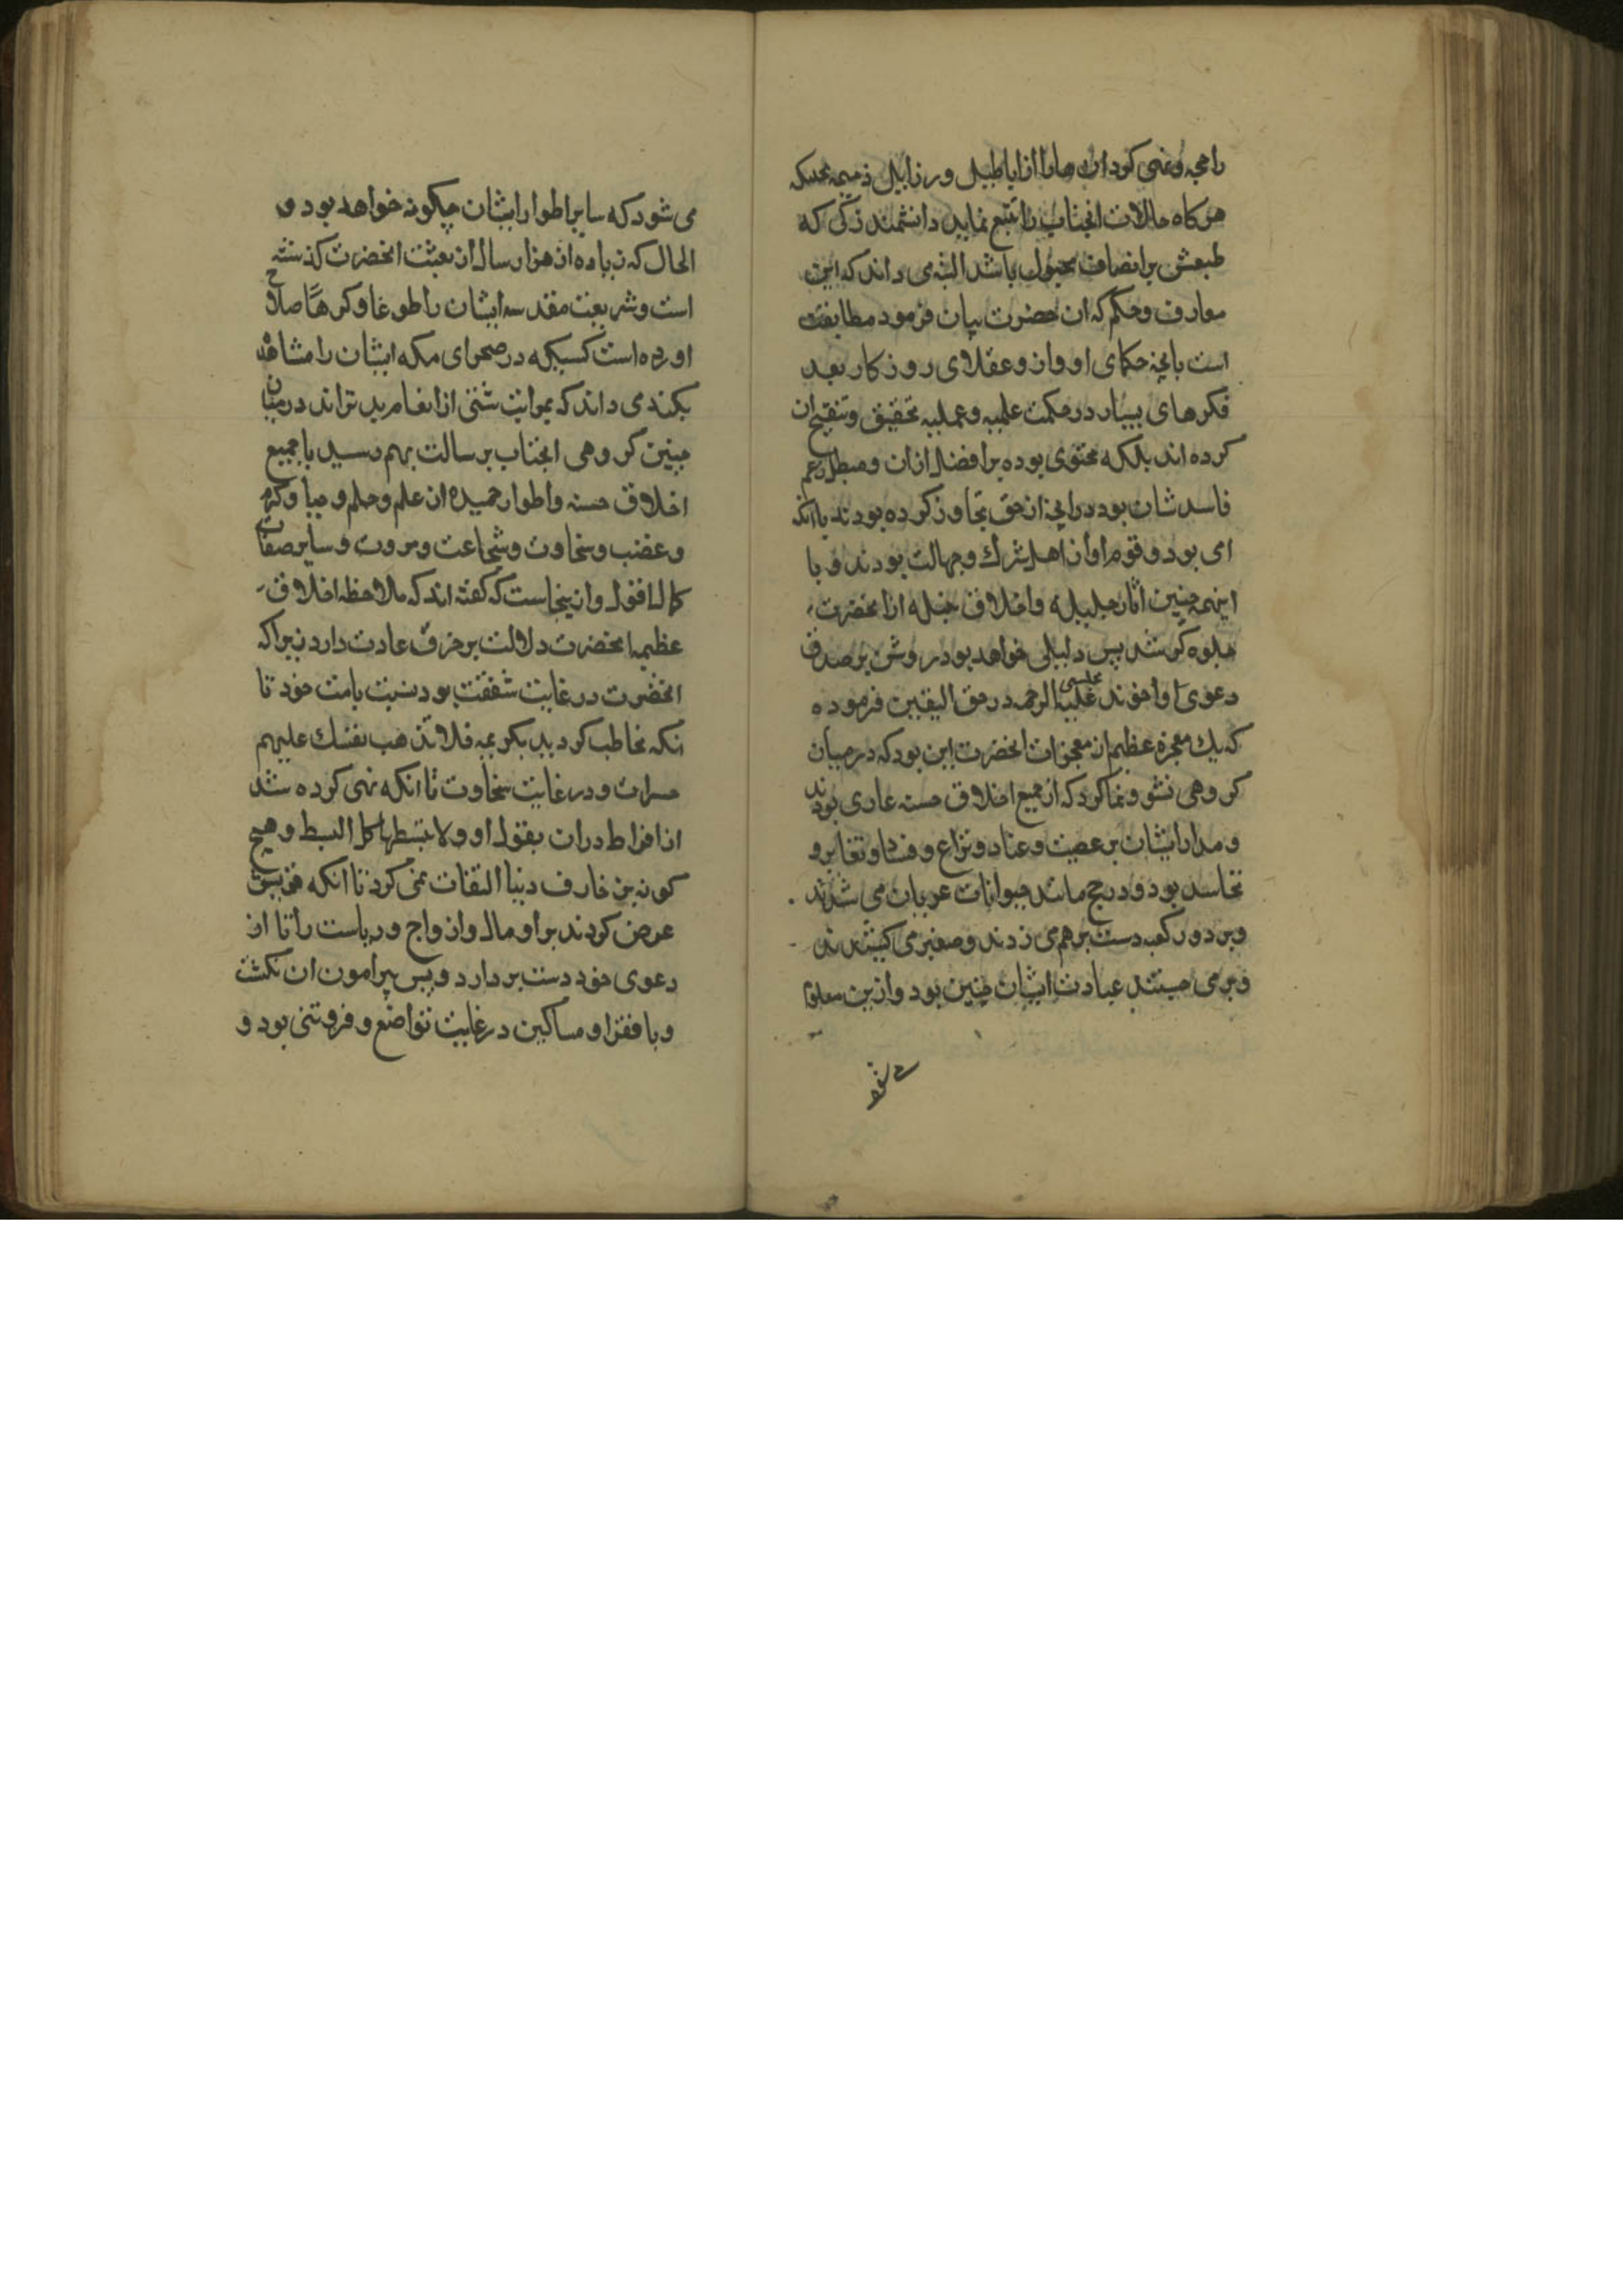 هرکاه حالات انجناب را تتبع نماید دانشمند زکی که
طبعش بر انصاف مجبول باشد البته می داند که این
معارف و حکم که ان حضرت بیان فرمود مطابقت
است بانچه حکمای اوان و عقلای روزکار بعد
فکرهای بسیار در حکمت علمیه و عملیه تحقیق و تنقیح ان
کرده اند بلکه محتوی بوده بر افضل از ان و مبطل زعم
فاسد شان بود در انچه از حق تجاوز کرده بودند با انکه
امی بود و قوم او از اهل شرک و جهالت بودند و با
اینهمه چنین اثار جلیله و اخلاق جمیله از انحضرت
جلوه کر شد پس دلیلی خواهد بود روشن بر صدق
دعوی او اخوند مجلسی علیه الرحمه در حق الیقین فرموده
که یک معجزه عظیم از معجزات انحضرت این بود که در میان
کروهی نشو و نما کرد که از جمیع اخلاق حسنه عاری بودند
و مدار ایشان بر عصبیت و عناد و نزاع و فساد و تغایر و
تحاسد بود و در حج مانند حیوانات عریان می شدند
و بر دور کعبه دست بر هم می زدند و صفیر می کشیدند
و بر می جستند عبادت ایشان چنین بود و ازین معلوم
می شود
می شود که سایر اطوار ایشان چکونه خواهد بود و
الحال که زیاده از هزار سال از بعثت انحضرت کذشته
است و شریعت مقدسه ایشان را طوعا و کرها باصلاح
اورده است کسیکه در صحرای مکه ایشان را مشاهده
بکند می داند که بمراتب شتی از انعام بدتراند در میان
چنین کروهی انجناب برسالت بهم رسید با جمیع
اخلاق حسنه و اطوار حمیده از علم و حلم و حیا و کرم
و غضب و سخاوت و شجاعت و مروت و سایر صفات
کمال اقول و ازینجاست که کفته اند که ملاحظه اخلاق
عظیمه انحضرت دلالت بر خرق عادت دارد زیرا که
انحضرت در غایت شفقت بود نسبت بامت خود تا
انکه مخاطب کردید بکریمه فلا تذهب نفسک علیهم
حسرات و در غایت سخاوت تا انکه نهی کرده شد
از افراط در ان بقول او و لا تبسطها کل البسط و هیچ
کونه بزخارف دنیا التفات نمی کرد تا انکه قریش
عرض کردند بر او مال و ازواج و ریاست را تا از
دعوی خود دست بردارد و پس پیرامون ان نکشت
و با فقرا و مساکین در غایت تواضع و فروتنی بود و